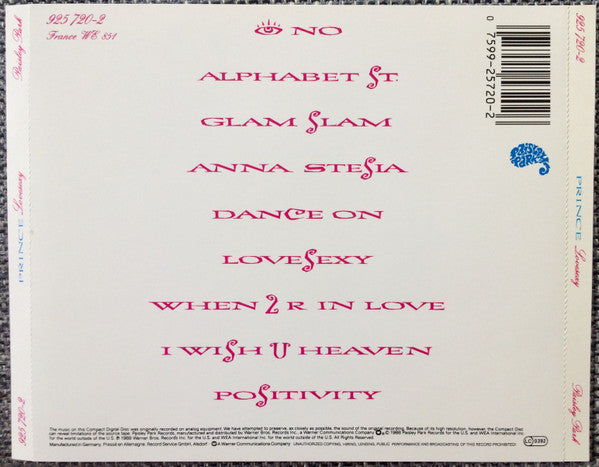 925 720-2
France WE 851
👁 NO
ALPHABET ST.
GLAM SLAM
ANNA STESIA
DANCE ON
LOVESEXY
WHEN 2 R IN LOVE
I WISH U HEAVEN
POSITIVITY
0 7599-25720-2
PAISLEY PARK
Paisley Park
PRINCE Lovesexy
925 720-2
925 720-2
PRINCE Lovesexy
Paisley Park
The music on this Compact Digital Disc was originally recorded on analog equipment. We have attempted to preserve, as closely as possible, the sound of the original recording. Because of its high resolution, however, the Compact Disc
can reveal limitations of the source tape. Paisley Park Records, manufactured and distributed by Warner Bros. Records Inc., a Warner Communications Company ℗ © 1988 Paisley Park Records for the U.S. and WEA International Inc. for
the world outside of the U.S. ℗ 1988 Warner Bros. Records Inc. for the U.S. and WEA International Inc. for the world outside of the U.S. All Rights Reserved.
Manufactured in Germany. Printed in Allemagne. Record Service GmbH, Alsdorf. A Warner Communications Company UNAUTHORIZED COPYING, HIRING, LENDING, PUBLIC PERFORMANCE AND BROADCASTING OF THIS RECORD PROHIBITED!
LC 0392